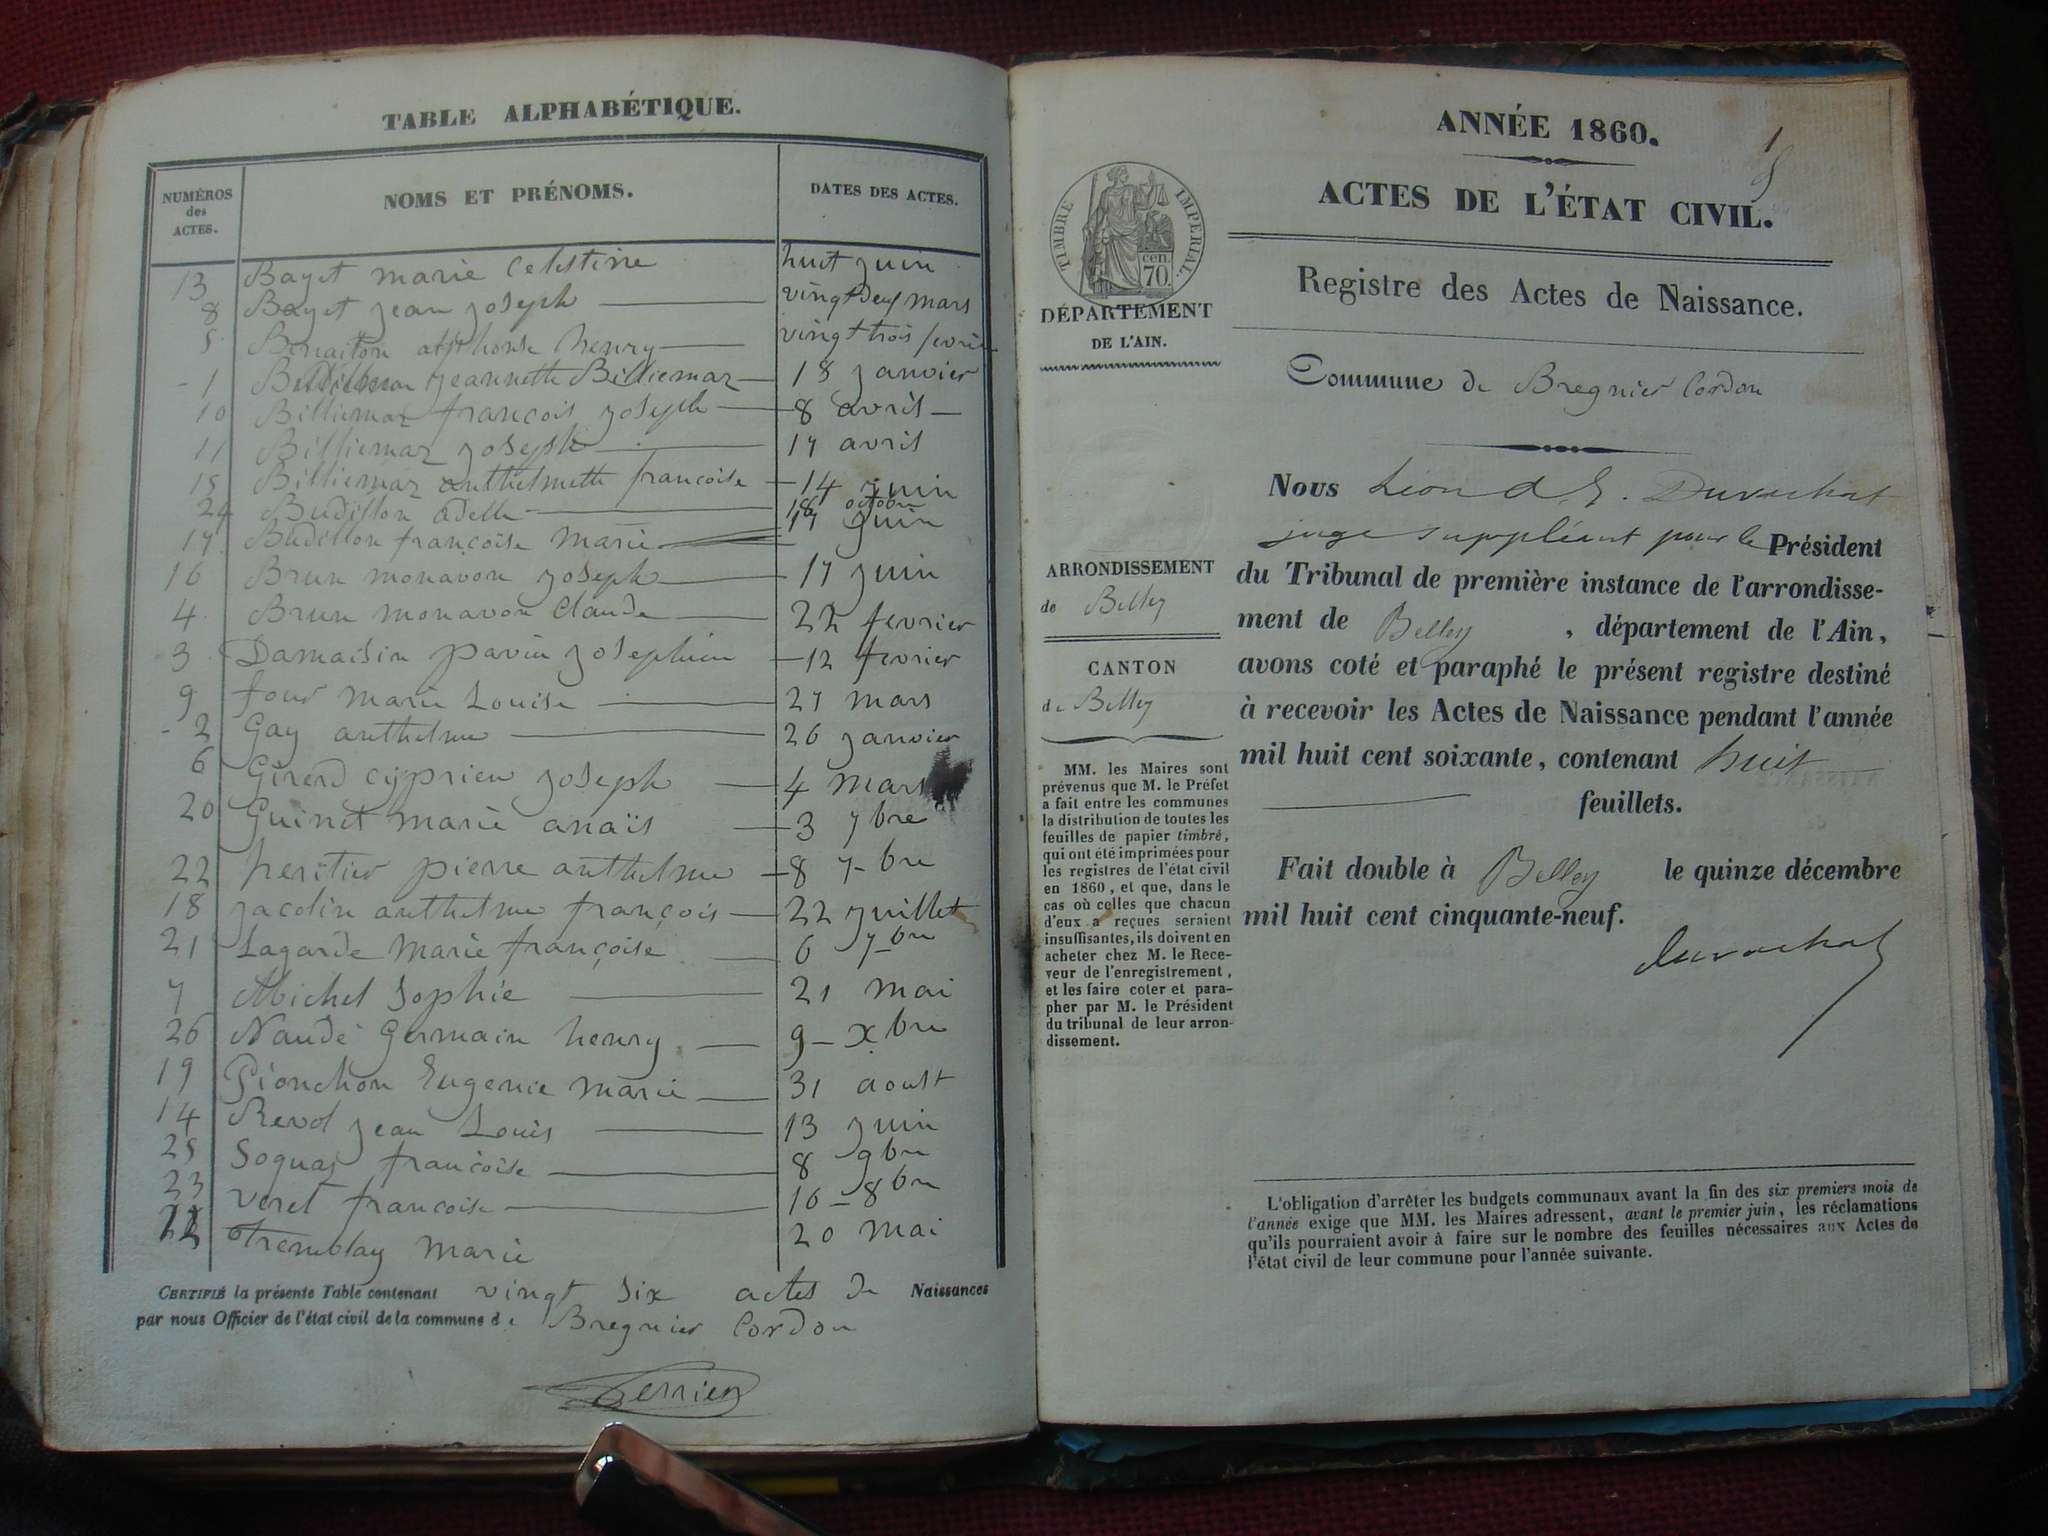 TABLE ALPHABÉTIQUE.
NUMÉROS des ACTES. NOMS ET PRÉNOMS. DATES DES ACTES.
13 Bayet marie Celestine huit juin
8 Bayet jean joseph vingt deux mars
5 alphonse henry vingt trois fevrier
1 jeannette Billiemaz 18 janvier
10 Billiemaz françois joseph 8 avril
11 Billiemaz joseph 17 avril
15 Billiemaz anthelmette francoise 14 juin
24 Budillon adelle 18 octobre
17 Budillon françoise marie 17 juin
16 Brun monavon joseph 17 juin
4 Brun monavon Claude 22 fevrier
3 Damaisin pavin josephine 12 fevrier
9 four marie Louise 27 mars
2 Gay anthelme 26 janvier
6 Girerd cyprien joseph 4 mars
20 Guinet marie anaïs 3 7bre
22 heritier pierre anthelme 8 7-bre
18 jacolin anthelme françois 22 juillet
21 Lagarde Marie françoise 6 7-bre
7 Michel Sophie 21 mai
26 Naudé Germain henry 9-xbre
19 Pionchon Eugenie marie 31 aoust
14 Revol jean Louis 13 juin
25 Soquaz francoise 8 9bre
23 veret francoise 16-8bre
12 Tremblay Marie 20 mai
CERTIFIÉ la présente Table contenant vingt six actes de Naissances
par nous Officier de l'état civil de la commune de Bregnier Cordon
Perrier
ANNÉE 1860.
1
ACTES DE L'ÉTAT CIVIL.
TIMBRE IMPÉRIAL.
cen. 70.
DÉPARTEMENT
DE L'AIN.
Registre des Actes de Naissance.
Commune de Bregnier Cordon
Nous Léon Durochat
juge suppléant pour le Président
du Tribunal de première instance de l'arrondisse-
ment de Belley, département de l'Ain,
avons coté et paraphé le présent registre destiné
à recevoir les Actes de Naissance pendant l'année
mil huit cent soixante, contenant huit
feuillets.
Fait double à Belley le quinze décembre
mil huit cent cinquante-neuf.
Durochat
ARRONDISSEMENT
de Belley
CANTON
de Belley
MM. les Maires sont
prévenus que M. le Préfet
a fait entre les communes
la distribution de toutes les
feuilles de papier timbré,
qui ont été imprimées pour
les registres de l'état civil
en 1860, et que, dans le
cas où celles que chacun
d'eux a reçues seraient
insuffisantes, ils doivent en
acheter chez M. le Rece-
veur de l'enregistrement,
et les faire coter et para-
pher par M. le Président
du tribunal de leur arron-
dissement.
L'obligation d'arrêter les budgets communaux avant la fin des six premiers mois de
l'année exige que MM. les Maires adressent, avant le premier juin, les réclamations
qu'ils pourraient avoir à faire sur le nombre des feuilles nécessaires aux Actes de
l'état civil de leur commune pour l'année suivante.